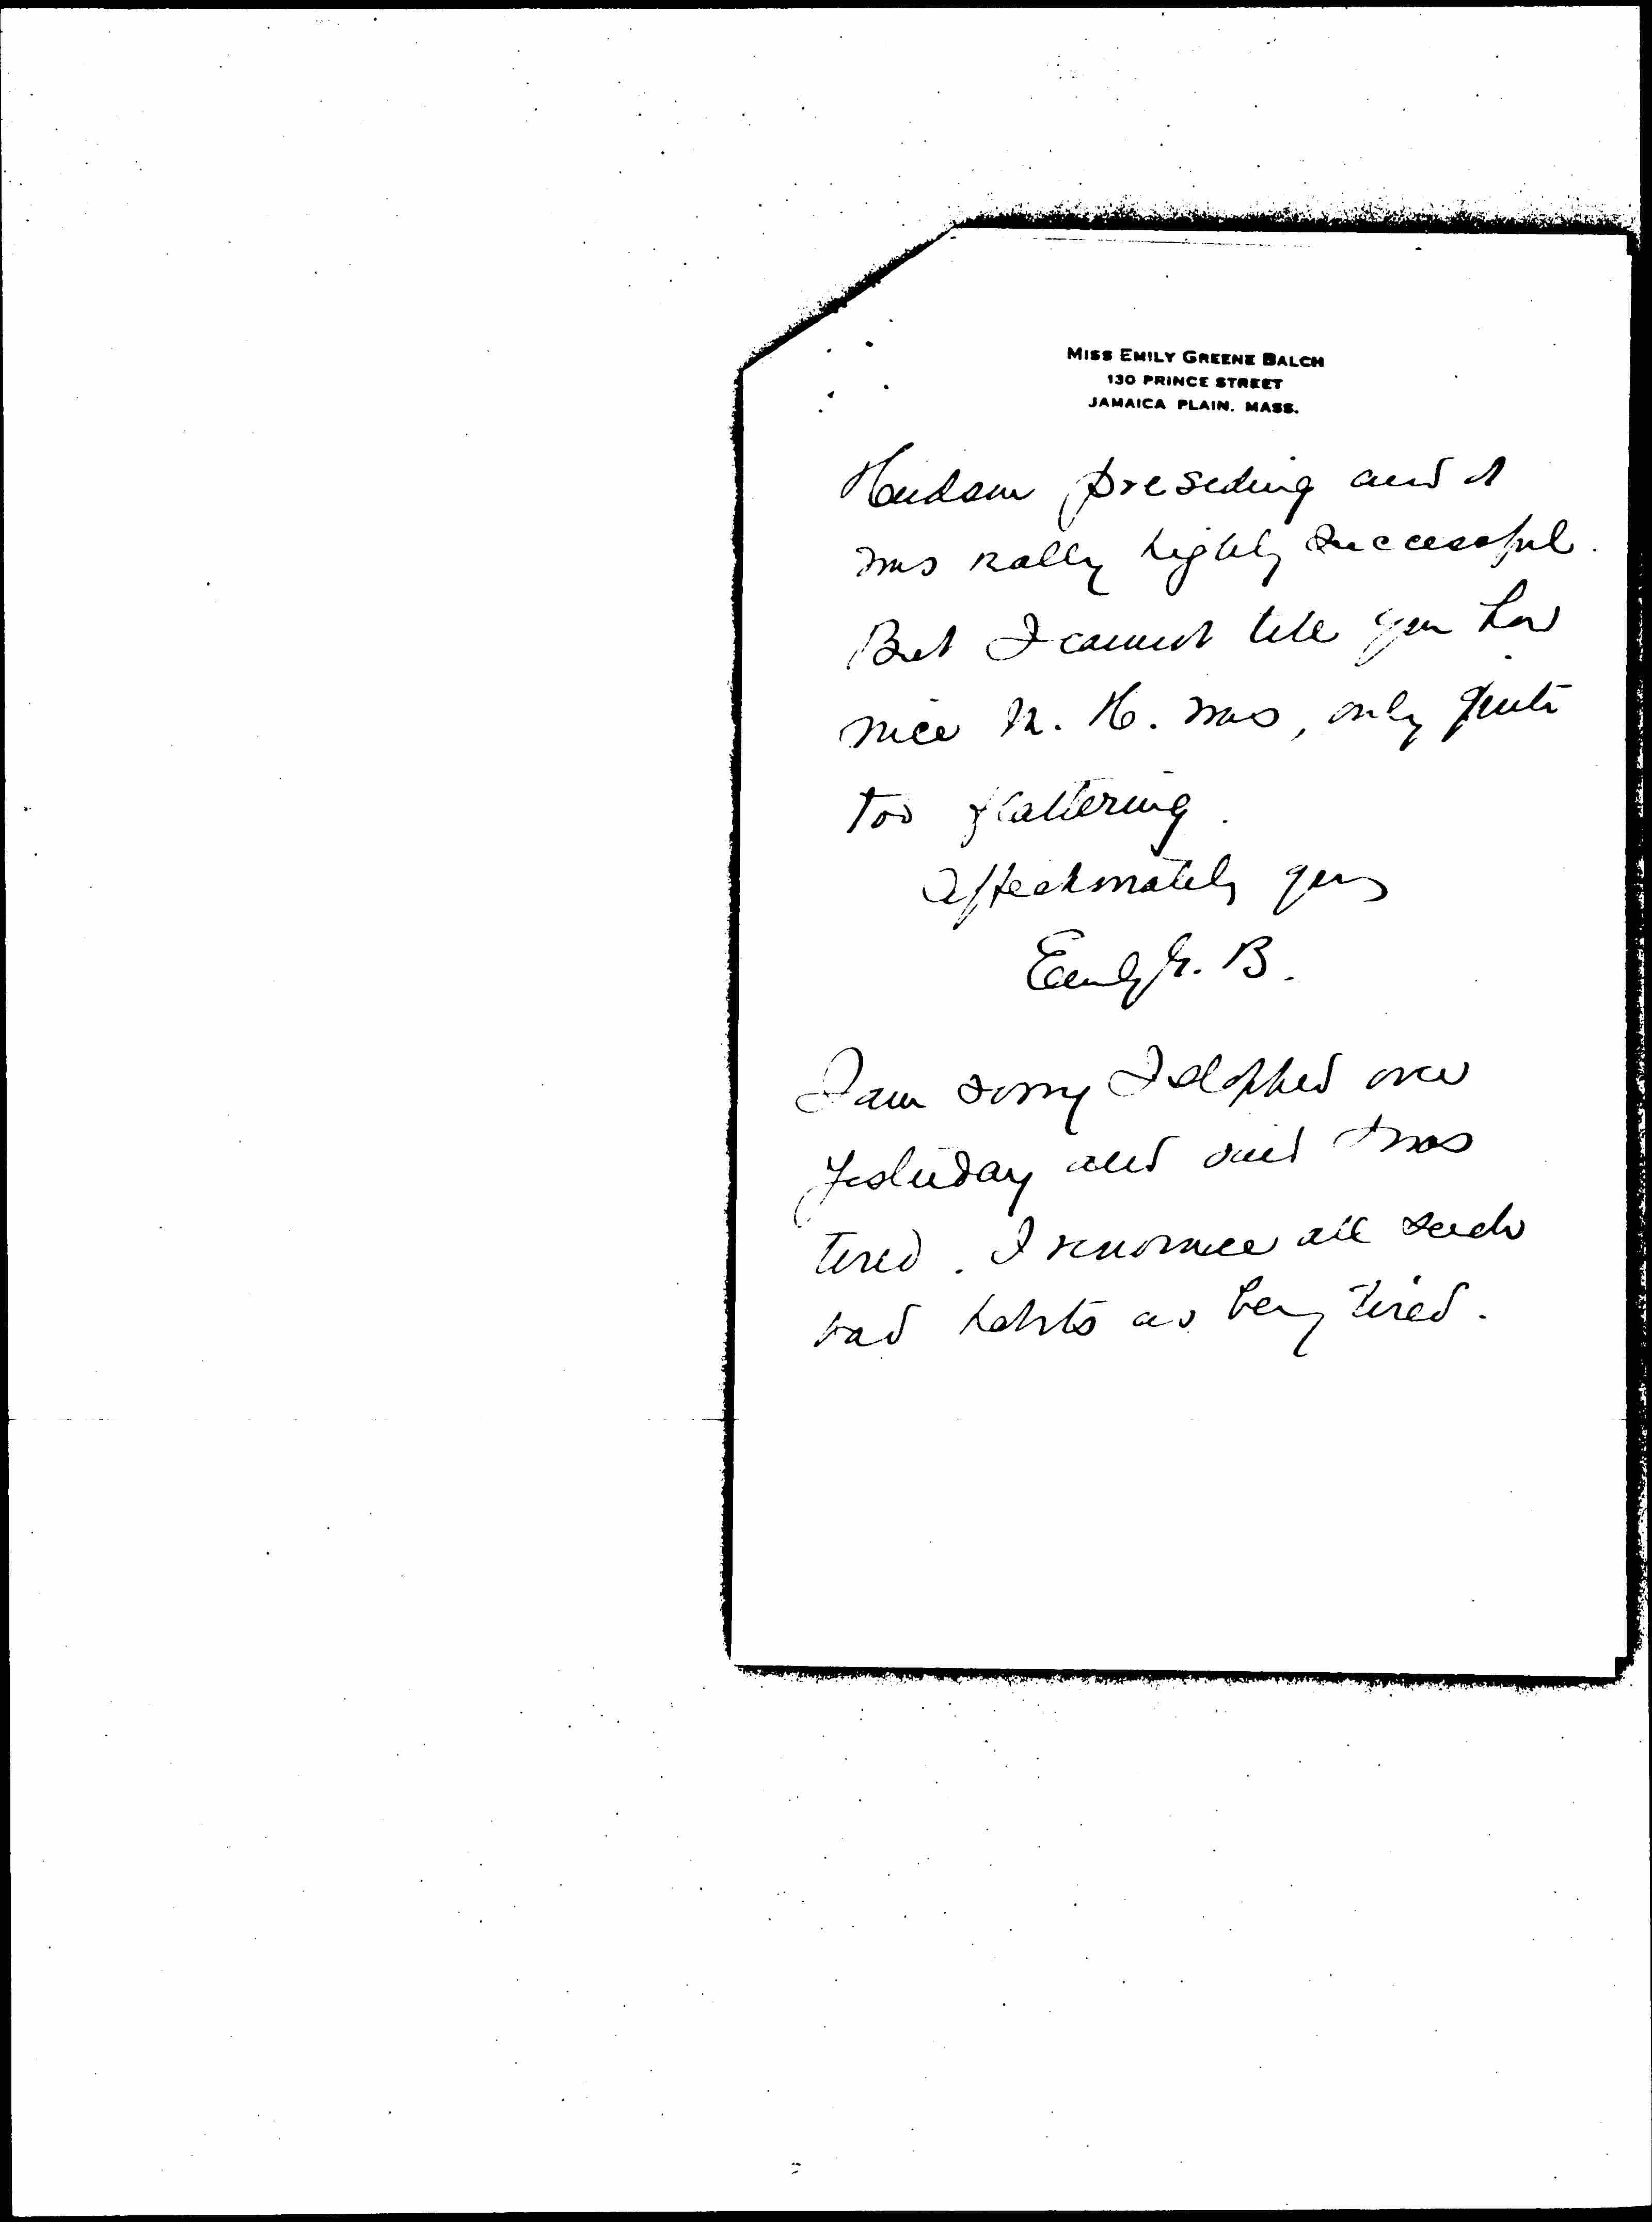 MISS EMILY GREENE BALCH
130 PRINCE STREET
JAMAICA PLAIN, MASS.
Hudson presiding and it
was really highly successful.
But I cannot tell you how
nice M. H. was, only quite
too flattering.
Affectionately yours
Emily G. B.
I am sorry I slopped over
yesterday and said I was
tired. I renounce all such
bad habits as being tired.